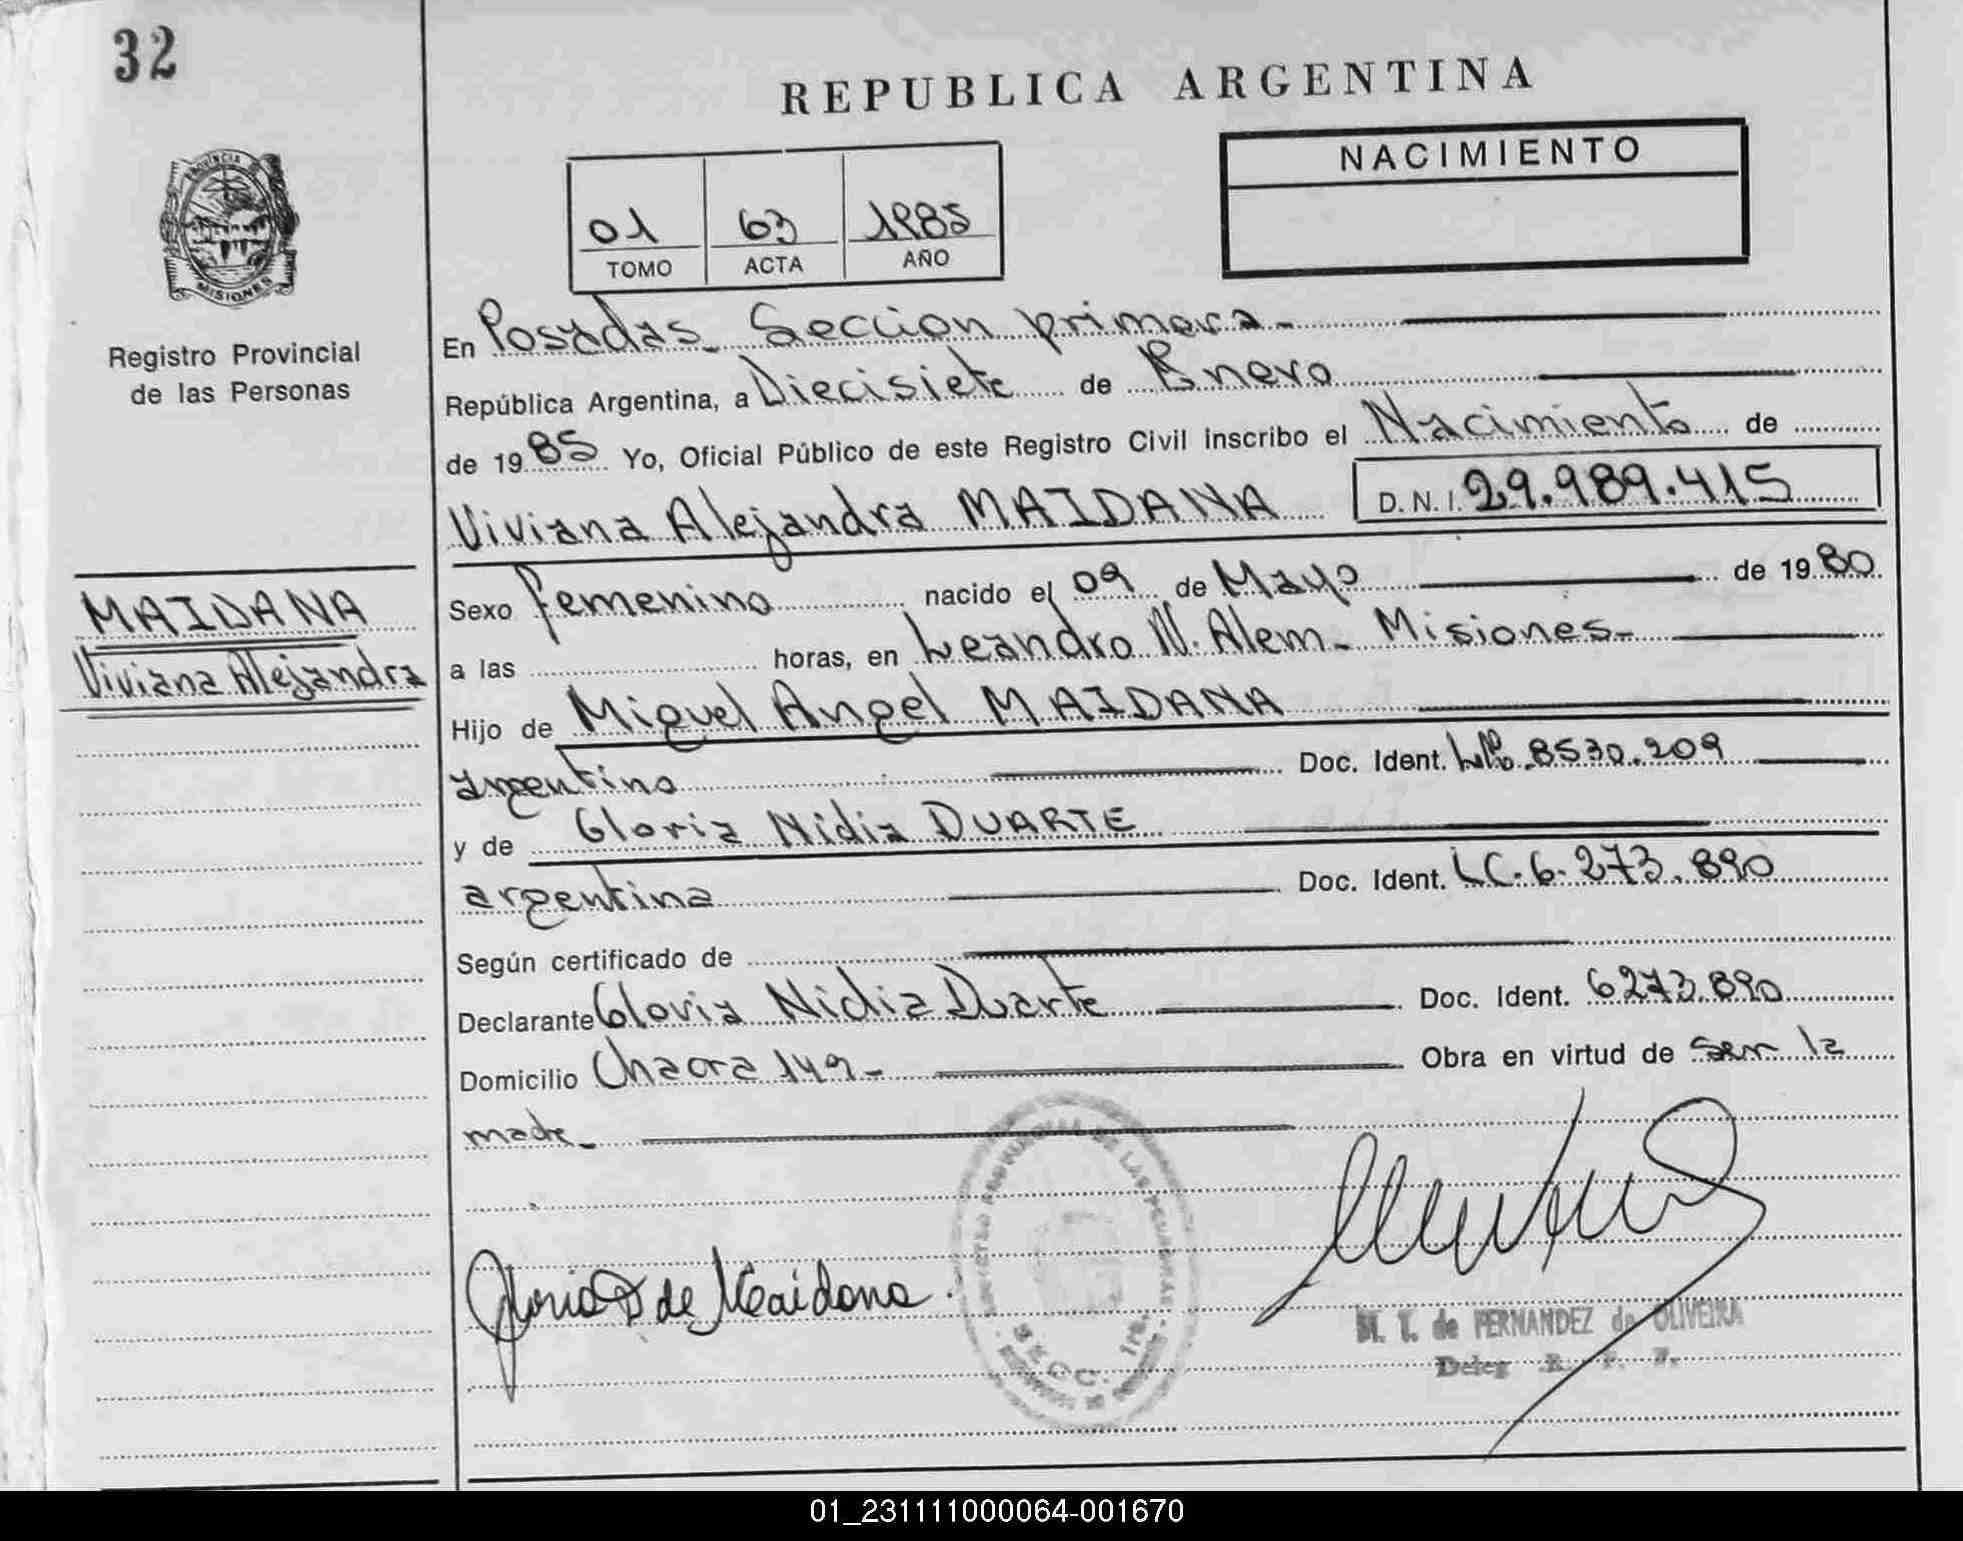 32
REPUBLICA ARGENTINA
PROVINCIA
MISIONES
Registro Provincial
de las Personas
NACIMIENTO
01 63 1985
TOMO ACTA AÑO
En Posadas_ Seccion primera_
República Argentina, a Diecisiete de Enero
de 1985 Yo, Oficial Público de este Registro Civil inscribo el Nacimiento de
Viviana Alejandra MAIDANA D.N.I. 29.989.415
MAIDANA
Viviana Alejandra
Sexo femenino nacido el 09 de Mayo de 1980
a las horas, en Leandro N. Alem_ Misiones_
Hijo de Miguel Angel MAIDANA
argentino Doc. Ident. 8530.209
y de Gloria Nidia DUARTE
argentina Doc. Ident. LC. 6.273.890
Según certificado de
Declarante Gloria Nidia Duarte Doc. Ident. 6273.890
Domicilio Chacra 149_ Obra en virtud de ser la
madre_
Gloria D de Maidana.
SECC. 1ra.
M. T. de FERNANDEZ de OLIVEIRA
Deleg. R. P. P.
01_231111000064-001670